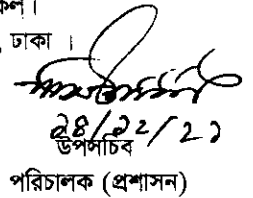 কল।
, ঢাকা ।
২৪/১২/২১
উপসচিব
পরিচালক (প্রশাসন)